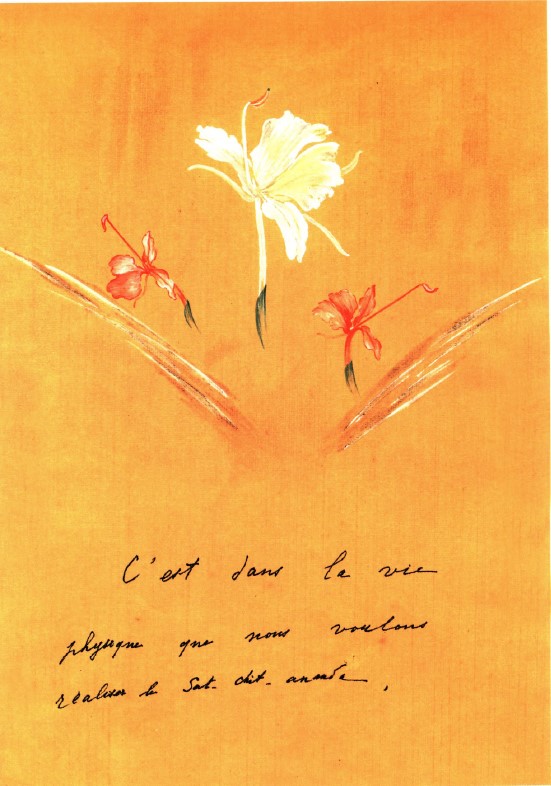 C'est dans la vie
physique que nous voulons
réaliser le Sat-chit-ananda.